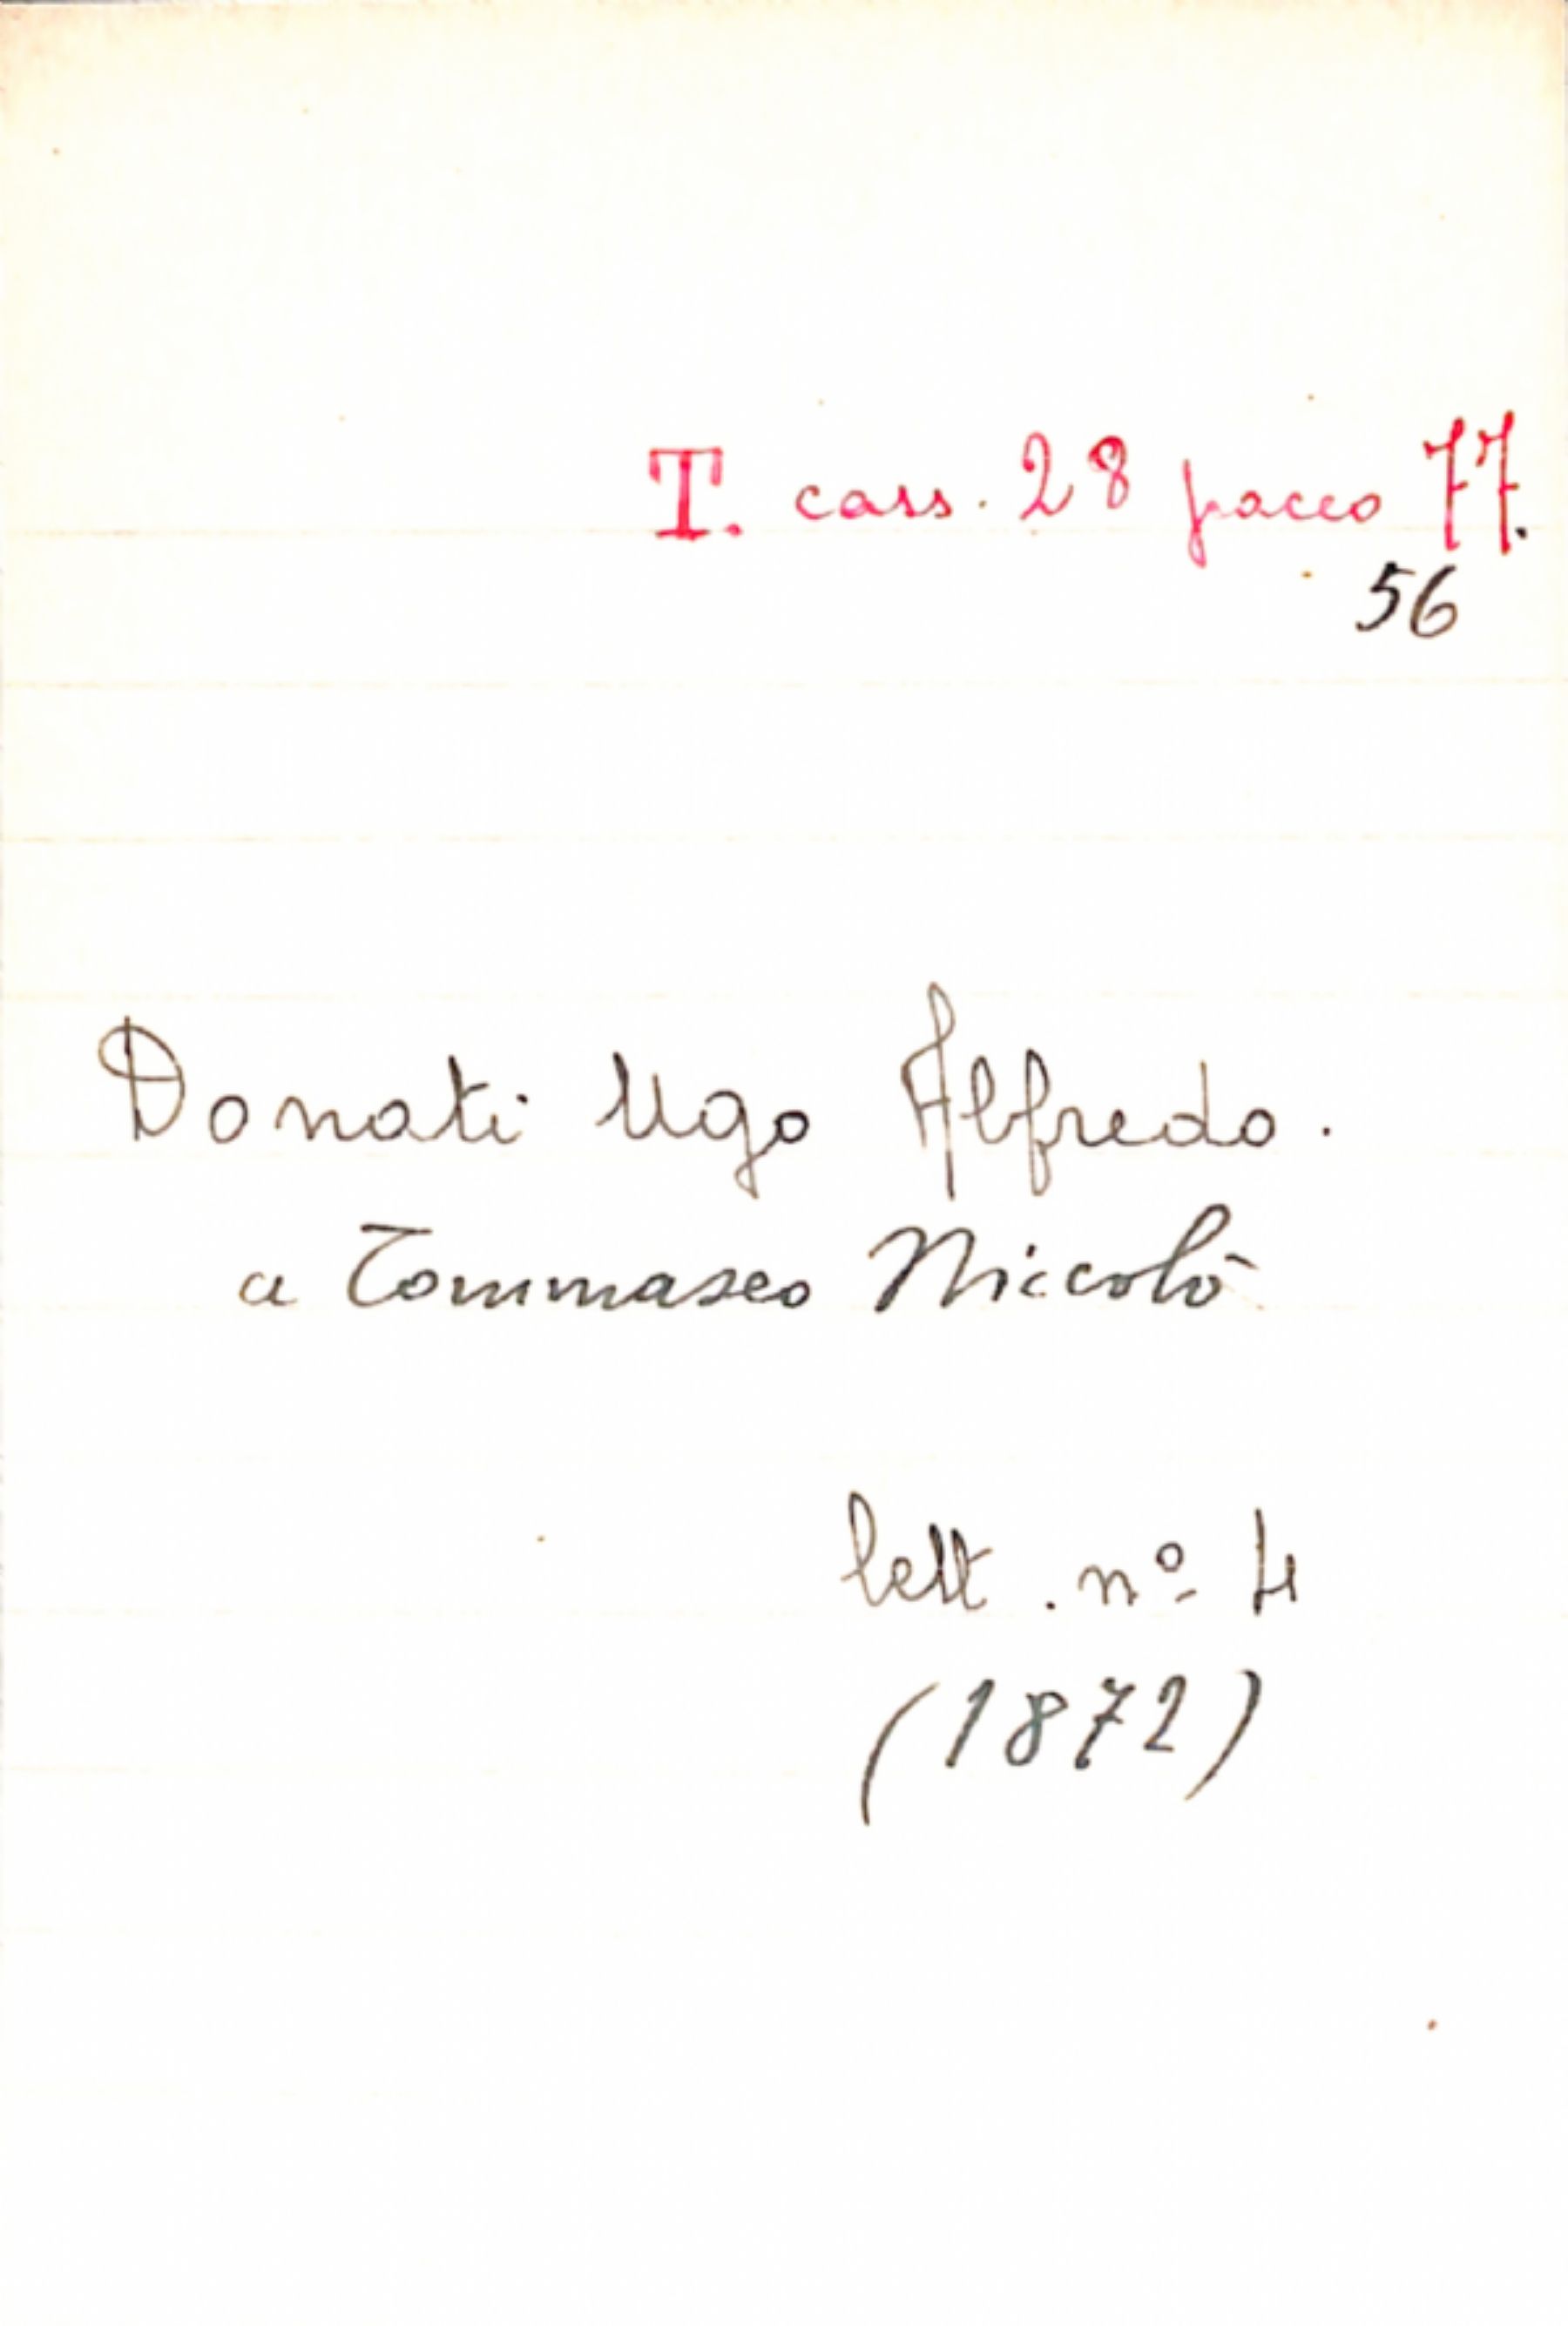 T. cass. 28 pacco 77.
56
Donati Ugo Alfredo.
a Tommaseo Niccolò
lett. nº 4
(1872)